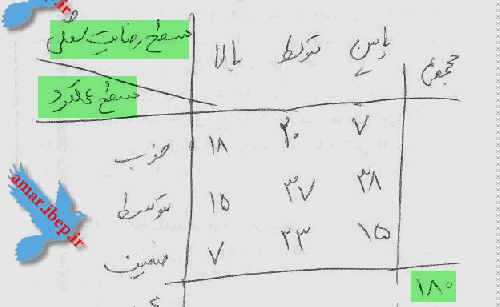 سطح رضایت شغلی
بالا متوسط پایین مجموع
سطح عملکرد
خوب ۱۸ ۲۰ ۷
متوسط ۱۵ ۳۷ ۳۸
ضعیف ۷ ۲۳ ۱۵
۱۸۰
amar.ibep.ir